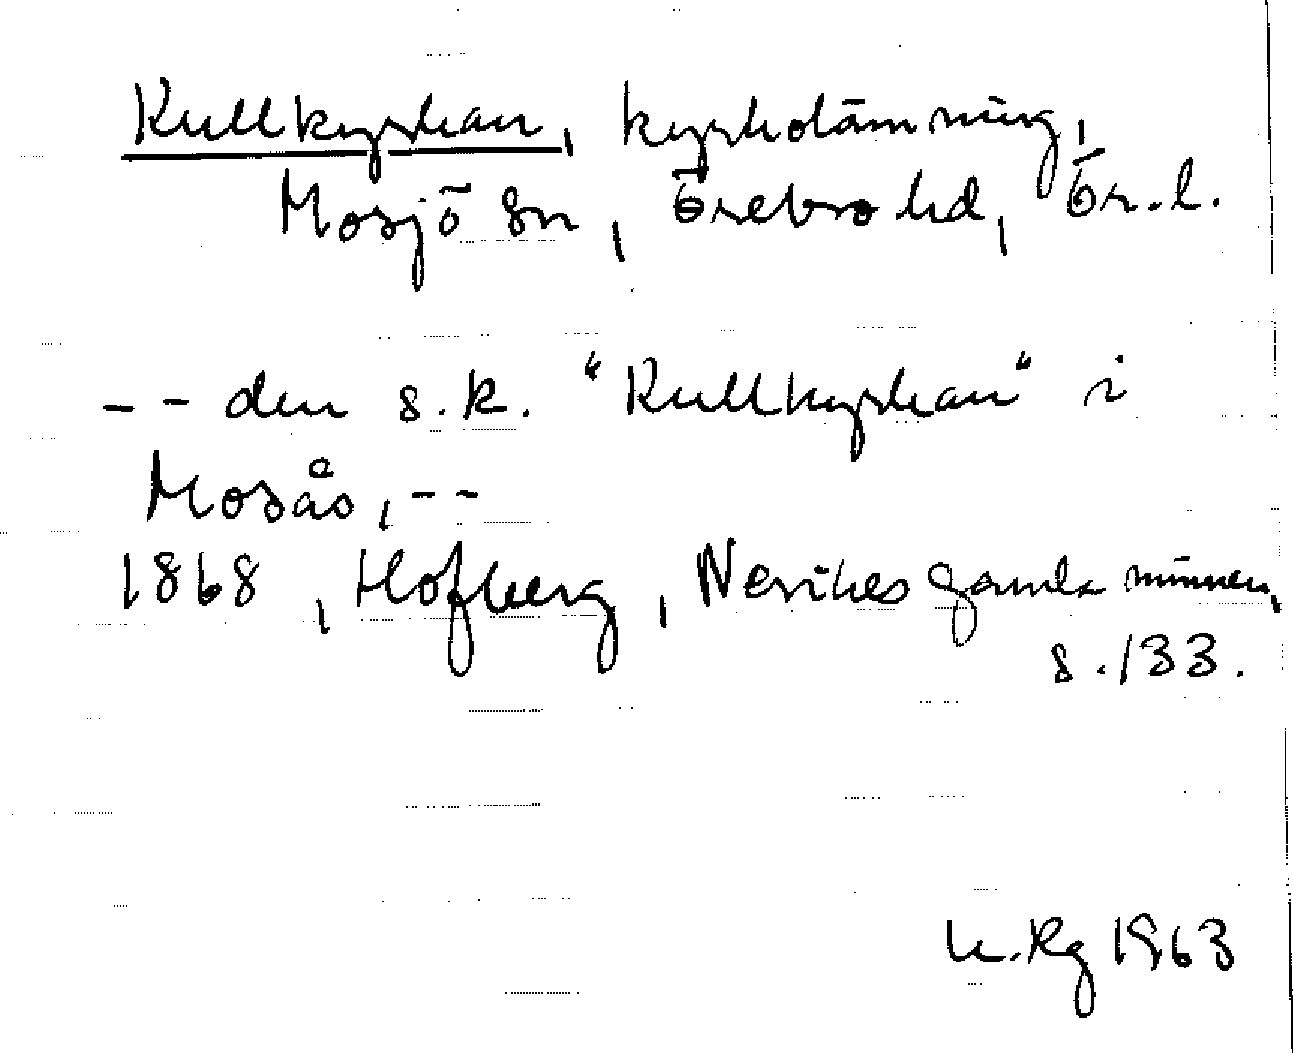 Kullkyrkan, kyrkolämning,
Mosjö sn, Örebro hd, Ör.l.
-- den s.k. "Kullkyrkan" i
Mosås, --
1868, Hofberg, Nerikes gamla minnen,
s. 133.
K.Rg 1963